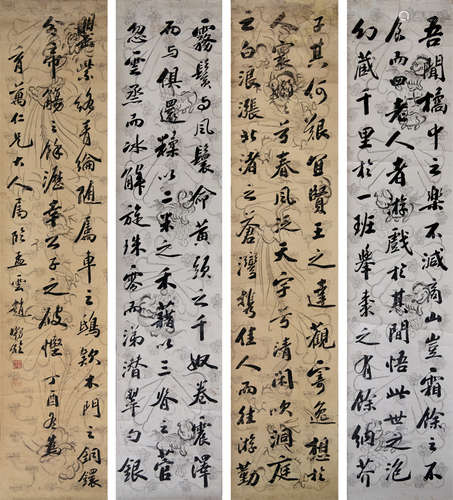 吾聞橘中之樂不減商山豈霜餘之不
食而四老人者游戲於其間悟此世之泡
幻藏千里於一班舉棗之有餘納芥
子其何艱宜賢王之達觀寄逸想於
人寰兮春風泛天宇兮清閑吹洞庭
之白浪漲北渚之蒼灣攜佳人而往游勤
霧鬢與風鬟命黃頭之千奴卷震澤
而與俱還糅以二米之禾藉以三脊之菅
忽雲烝而冰解旋珠零而涕潸翠勺銀
罌紫絡青綸隨屬車之鴟欵木門之銅鐶
分帝觴之餘瀝幸公子之破慳丁酉冬為
育萬仁兄大人屬孟雲趙